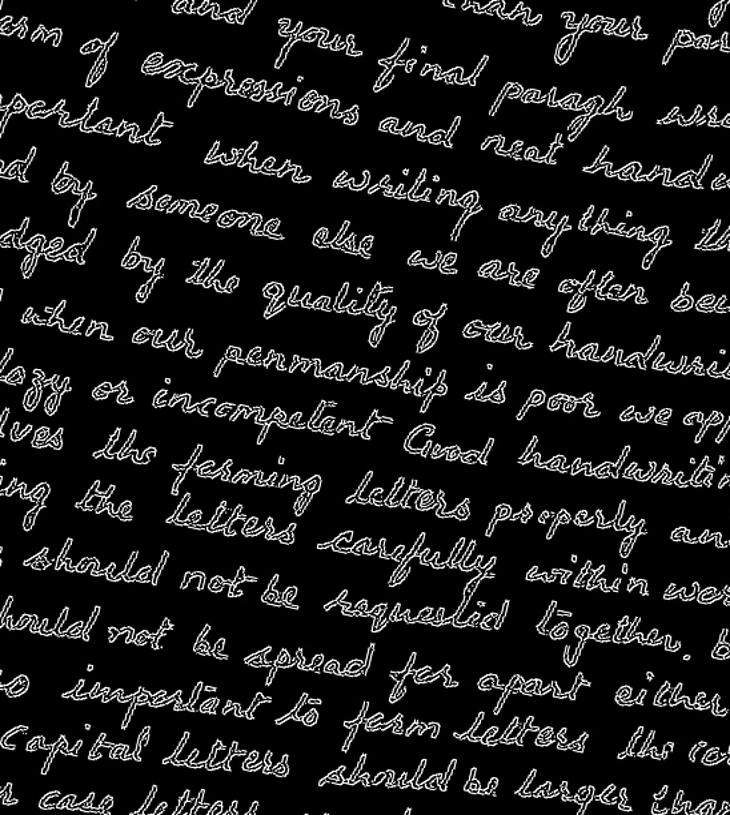 than your par
and your final paragh wre
orm of expressions and neat handw
pertant when writing anything th
ed by someone else we are often bec
dged by the quality of our handwrit
when our penmanship is poor we app
lazy or incompetent Good handwritin
lves the forming letters properly an
ing the letters carefully within wor
s should not be requestid together. B
hould not be spread far apart either
so important to form letters the cor
Capital letters should be larger than
r case letters